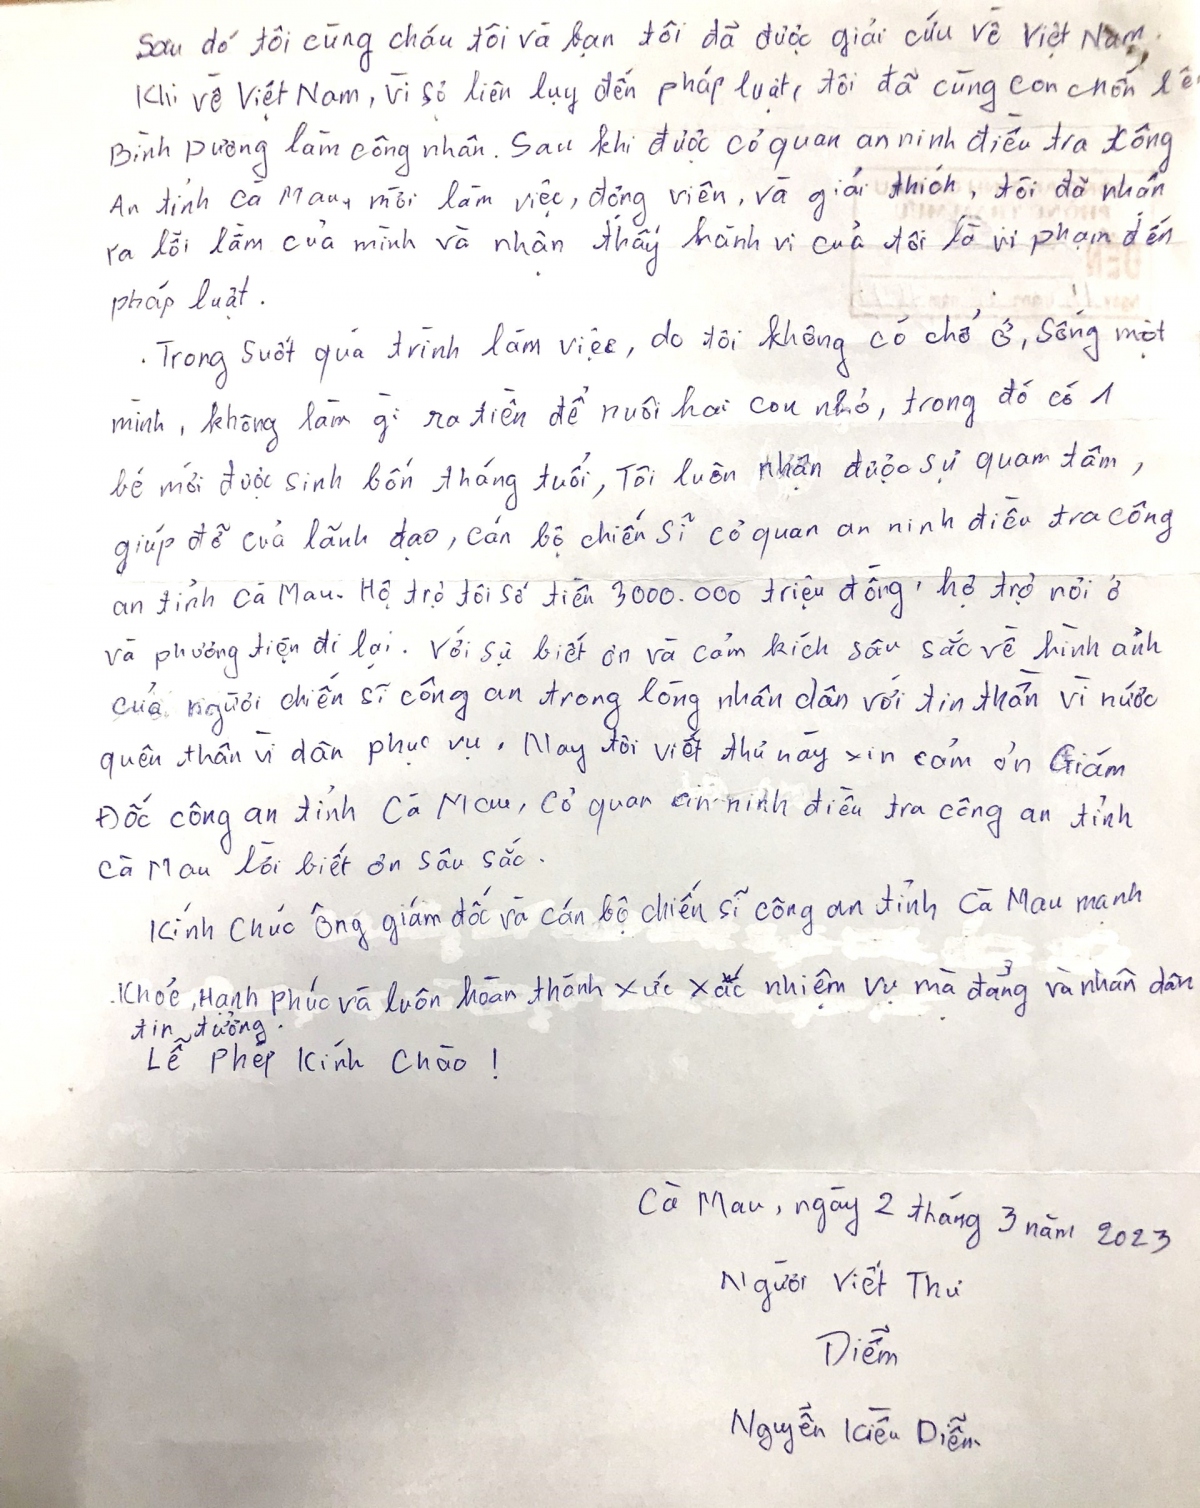 Sau đó tôi cùng cháu tôi và bạn tôi đã được giải cứu về Việt Nam.
Khi về Việt Nam, vì sợ liên lụy đến pháp luật, tôi đã cùng con chốn lê
Bình Dương làm công nhân. Sau khi được cơ quan an ninh điều tra công
An tỉnh Cà Mau, mời làm việc, động viên, và giải thích, tôi đã nhận
ra lỗi lầm của mình và nhận thấy hành vi của tôi là vi phạm đến
pháp luật.
Trong suốt quá trình làm việc, do tôi không có chổ ở, sống một
mình, không làm gì ra tiền để nuôi hai con nhỏ, trong đó có 1
bé mới được sinh bốn tháng tuổi, Tôi luôn nhận được sự quam tâm,
giúp đỡ của lãnh đạo, cán bộ chiến sĩ cơ quan an ninh điều tra công
an tỉnh Cà Mau. Hộ trợ tôi số tiền 3000.000 triệu đồng, hộ trợ nơi ở
và phương tiện đi lại. Với sự biết ơn và cảm kích sâu sắc về hình ảnh
của người chiến sĩ công an trong lòng nhân dân với tin thần vì nước
quên thân vì dân phục vụ. Nay tôi viết thư này xin cảm ơn Giám
Đốc công an tỉnh Cà Mau, cơ quan an ninh điều tra công an tỉnh
Cà Mau lời biết ơn sâu sắc.
Kính Chúc Ông giám đốc và cán bộ chiến sĩ công an tỉnh Cà Mau mạnh
Khỏe, Hạnh phúc và luôn hoàn thành xức xắc nhiệm vụ mà đảng và nhân dân
tin tưởng.
Lễ Phép Kính Chào !
Cà Mau, ngày 2 tháng 3 năm 2023
Người Viết Thư
Diễm
Nguyễn Kiều Diễm